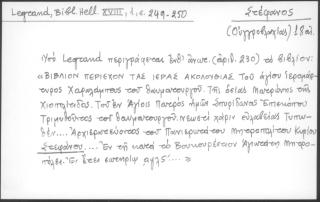 Legrand, Bibl. Hell. XVIII, 1, σ. 249-250
Στέφανος
(Οὐγγροβλαχίας) 18 αἰ.
Ὑπὸ Legrand περιγράφεται ἐνθ' ἀνωτ. (ἀριθ. 230) τὸ βιβλίον:
«ΒΙΒΛΙΟΝ ΠΕΡΙΕΧΟΝ ΤΑΣ ΙΕΡΑΣ ΑΚΟΛΟΥΘΙΑΣ Τοῦ ἁγίου ἱερομάρ-
τυρος Χαραλάμπους τοῦ θαυματουργοῦ. Τῆς ὁσίας Ματρώνης τῆς
Χιοπολίτιδος. Τοῦ ἐν Ἁγίοις Πατρὸς ἡμῶν Σπυρίδωνος Ἐπισκόπου
Τριμυθοῦντος τοῦ θαυματουργοῦ. Νεωστὶ χάριν εὐλαβείας Τυπω-
θὲν.... Ἀρχιερατεύοντος τοῦ Πανιερωτάτου Μητροπολίτου Κυρίου
Στεφάνου.... Ἐν τῇ κατὰ τὸ Βουκουρέστιον Ἁγιωτάτῃ Μητρο-
πόλει. Ἐν ἔτει σωτηρίῳ αψλς΄.... »